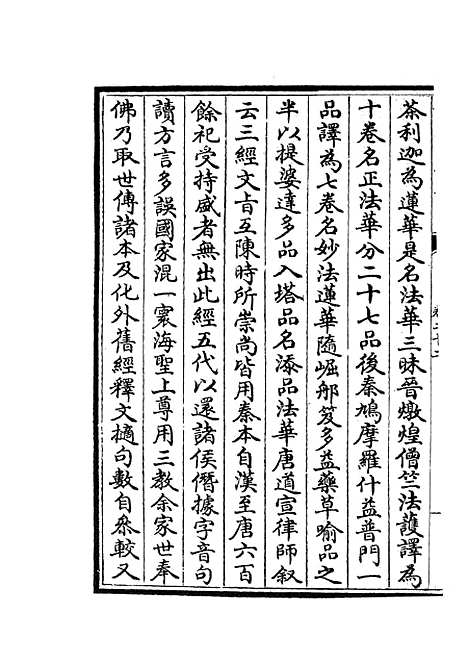 茶利迦為蓮華是名法華三昧晉燉煌僧竺法護譯為
十卷名正法華分二十七品後秦鳩摩羅什益普門一
品譯為七卷名妙法蓮華隨崛那笈多益藥草喻品之
半以提婆達多品入塔品名添品法華唐道宣律師叙
云三經文㫖互陳時所崇尚皆用秦本自漢至唐六百
餘祀受持威者無出此經五代以還諸侯僭據字音句
讀方言多誤國家混一寰海聖上尊用三教余家世奉
佛乃取世傳諸本及化外舊經釋文擿句數自叅較又